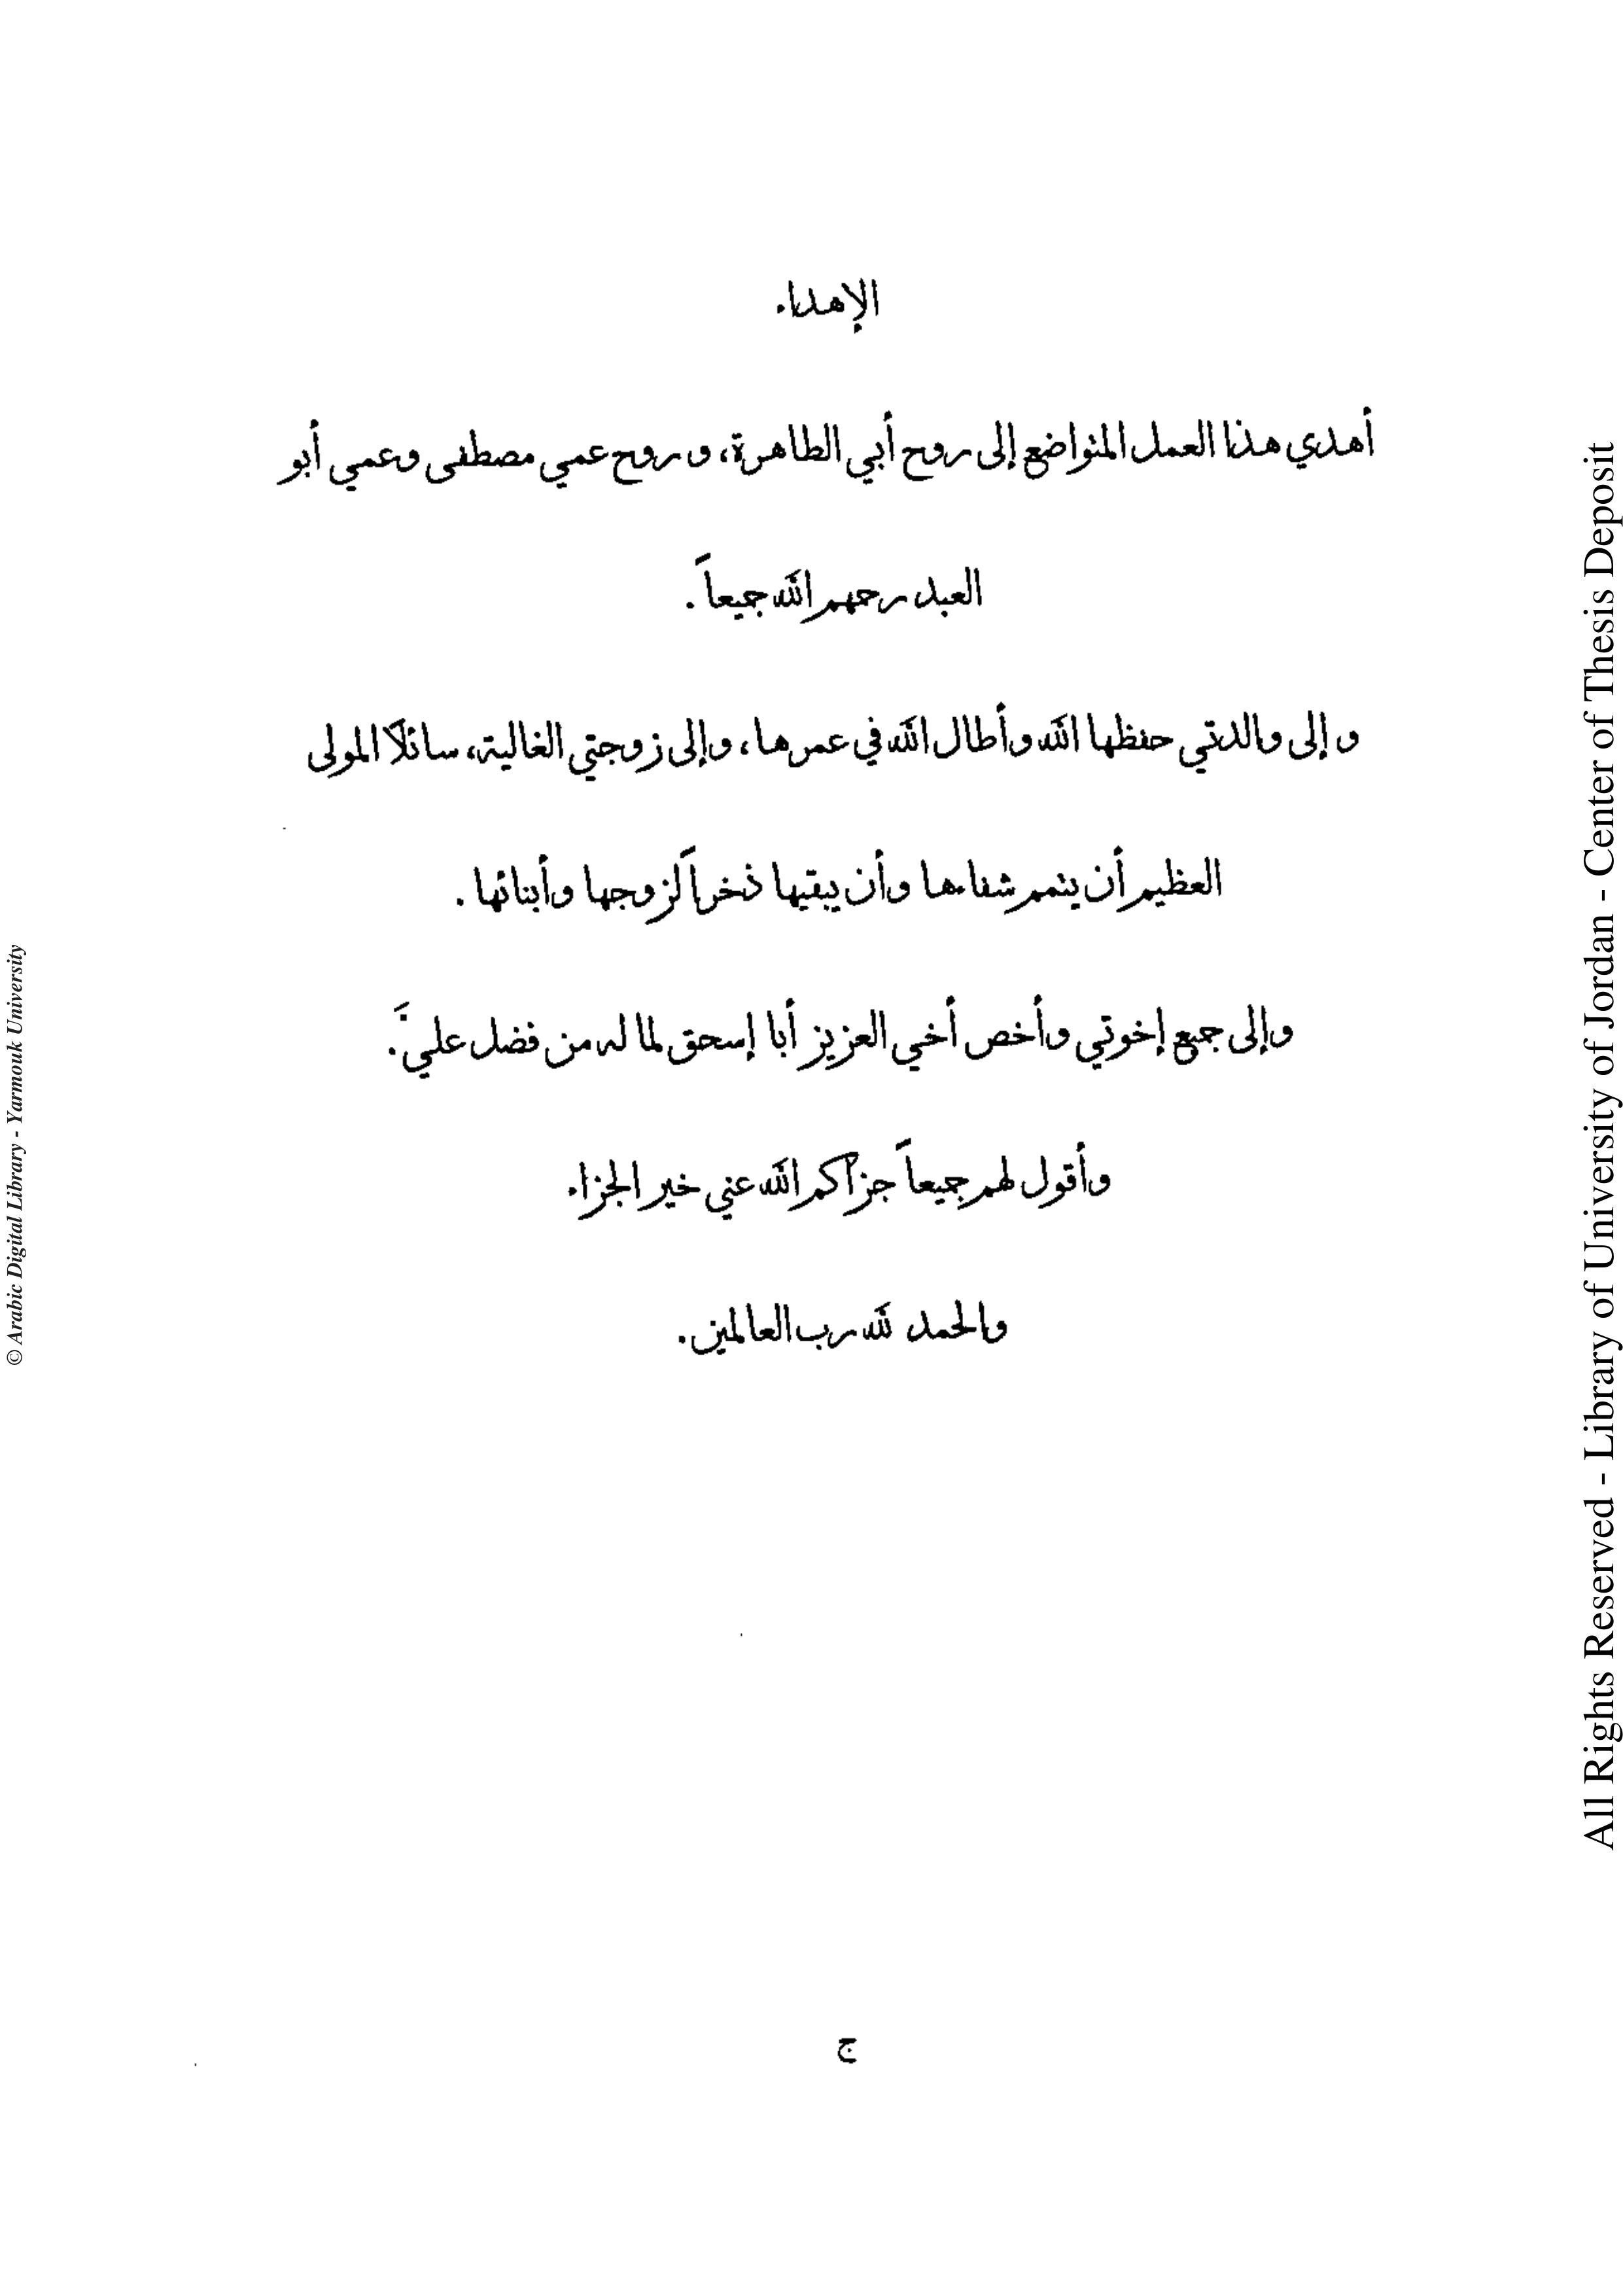 الإهداء
أهدي هذا العمل المتواضع إلى روح أبي الطاهرة، و روح عمي مصطفى وعمي أبو
العبد رحمهم الله جميعاً .
و إلى والدتي حفظها الله وأطال الله في عمرها، وإلى زوجتي الغالية، سائلاً المولى
العظيم أن يتمم شفاءها وأن يبقيها ذخراً لزوجها وأبنائها .
وإلى جميع إخوتي وأخص أخي العزيز أبا إسحق لما له من فضل عليَّ.
وأقول لهم جميعاً جزاكم الله عني خير الجزاء
والحمد لله رب العالمين .
ج
© Arabic Digital Library - Yarmouk University
All Rights Reserved - Library of University of Jordan - Center of Thesis Deposit